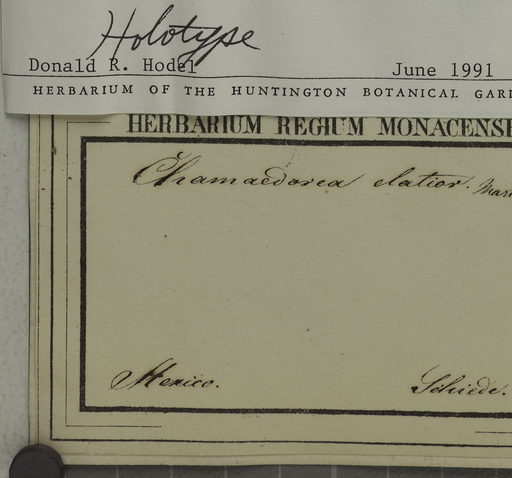 Holotype
Donald R. Hodel June 1991
HERBARIUM OF THE HUNTINGTON BOTANICAL GARD
HERBARIUM REGIUM MONACENSE
Chamaedorea elatior. Mart
Mexico. Schiede.